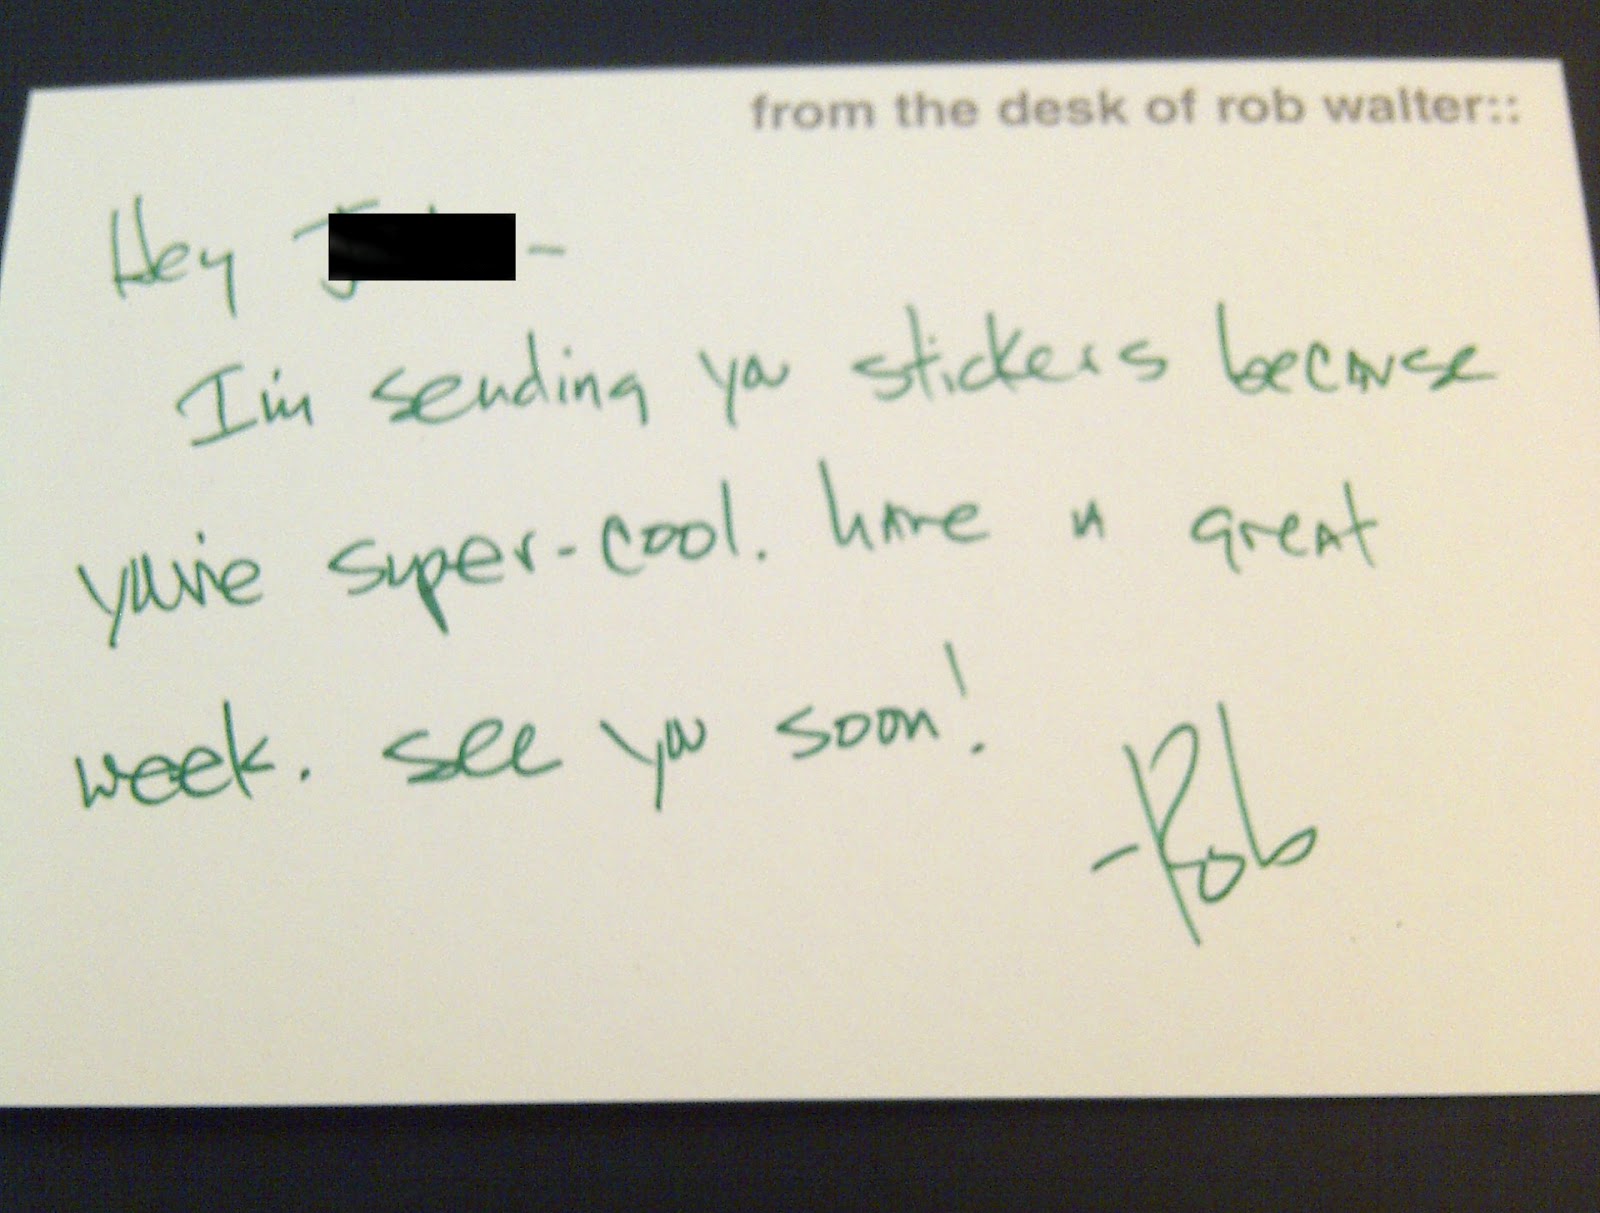 from the desk of rob walter::
Hey
I'm sending ya stickers because
you're super-cool. have a great
week. see ya soon!
-Rob